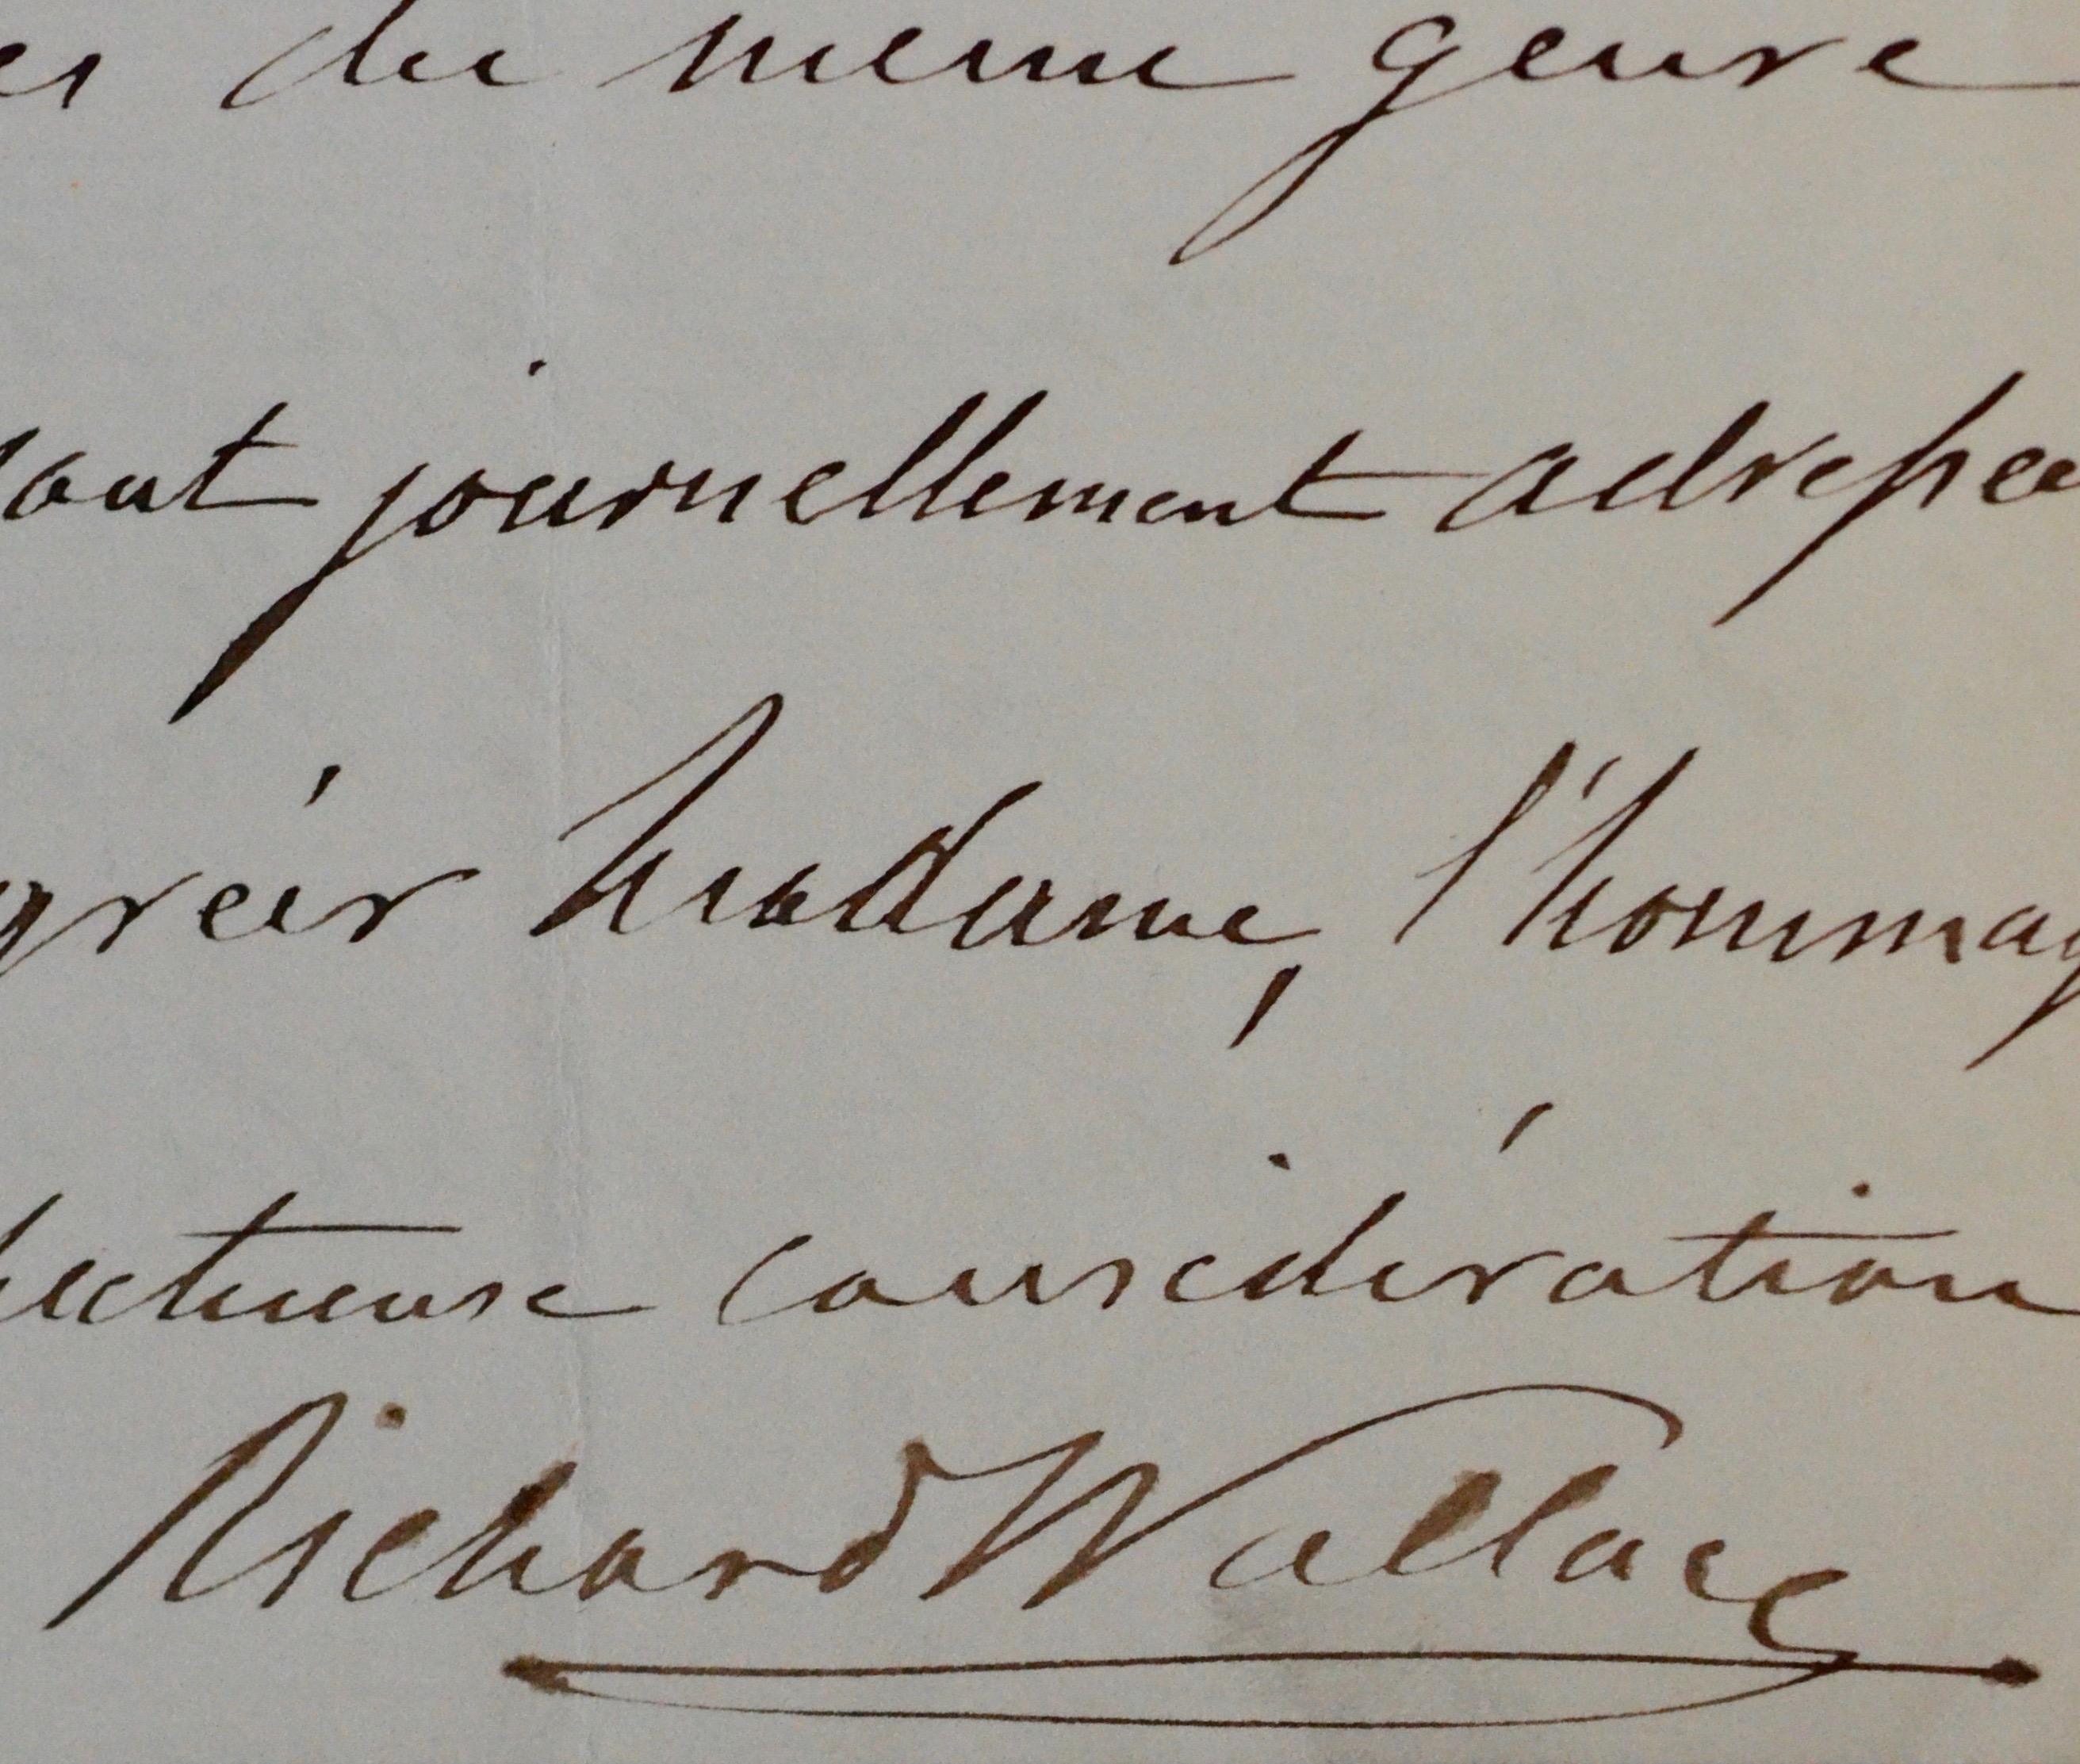 es du meme genre
sont journellement adressées
gréer Madame, l'hommag
pectueuse considération
Richard Wallace